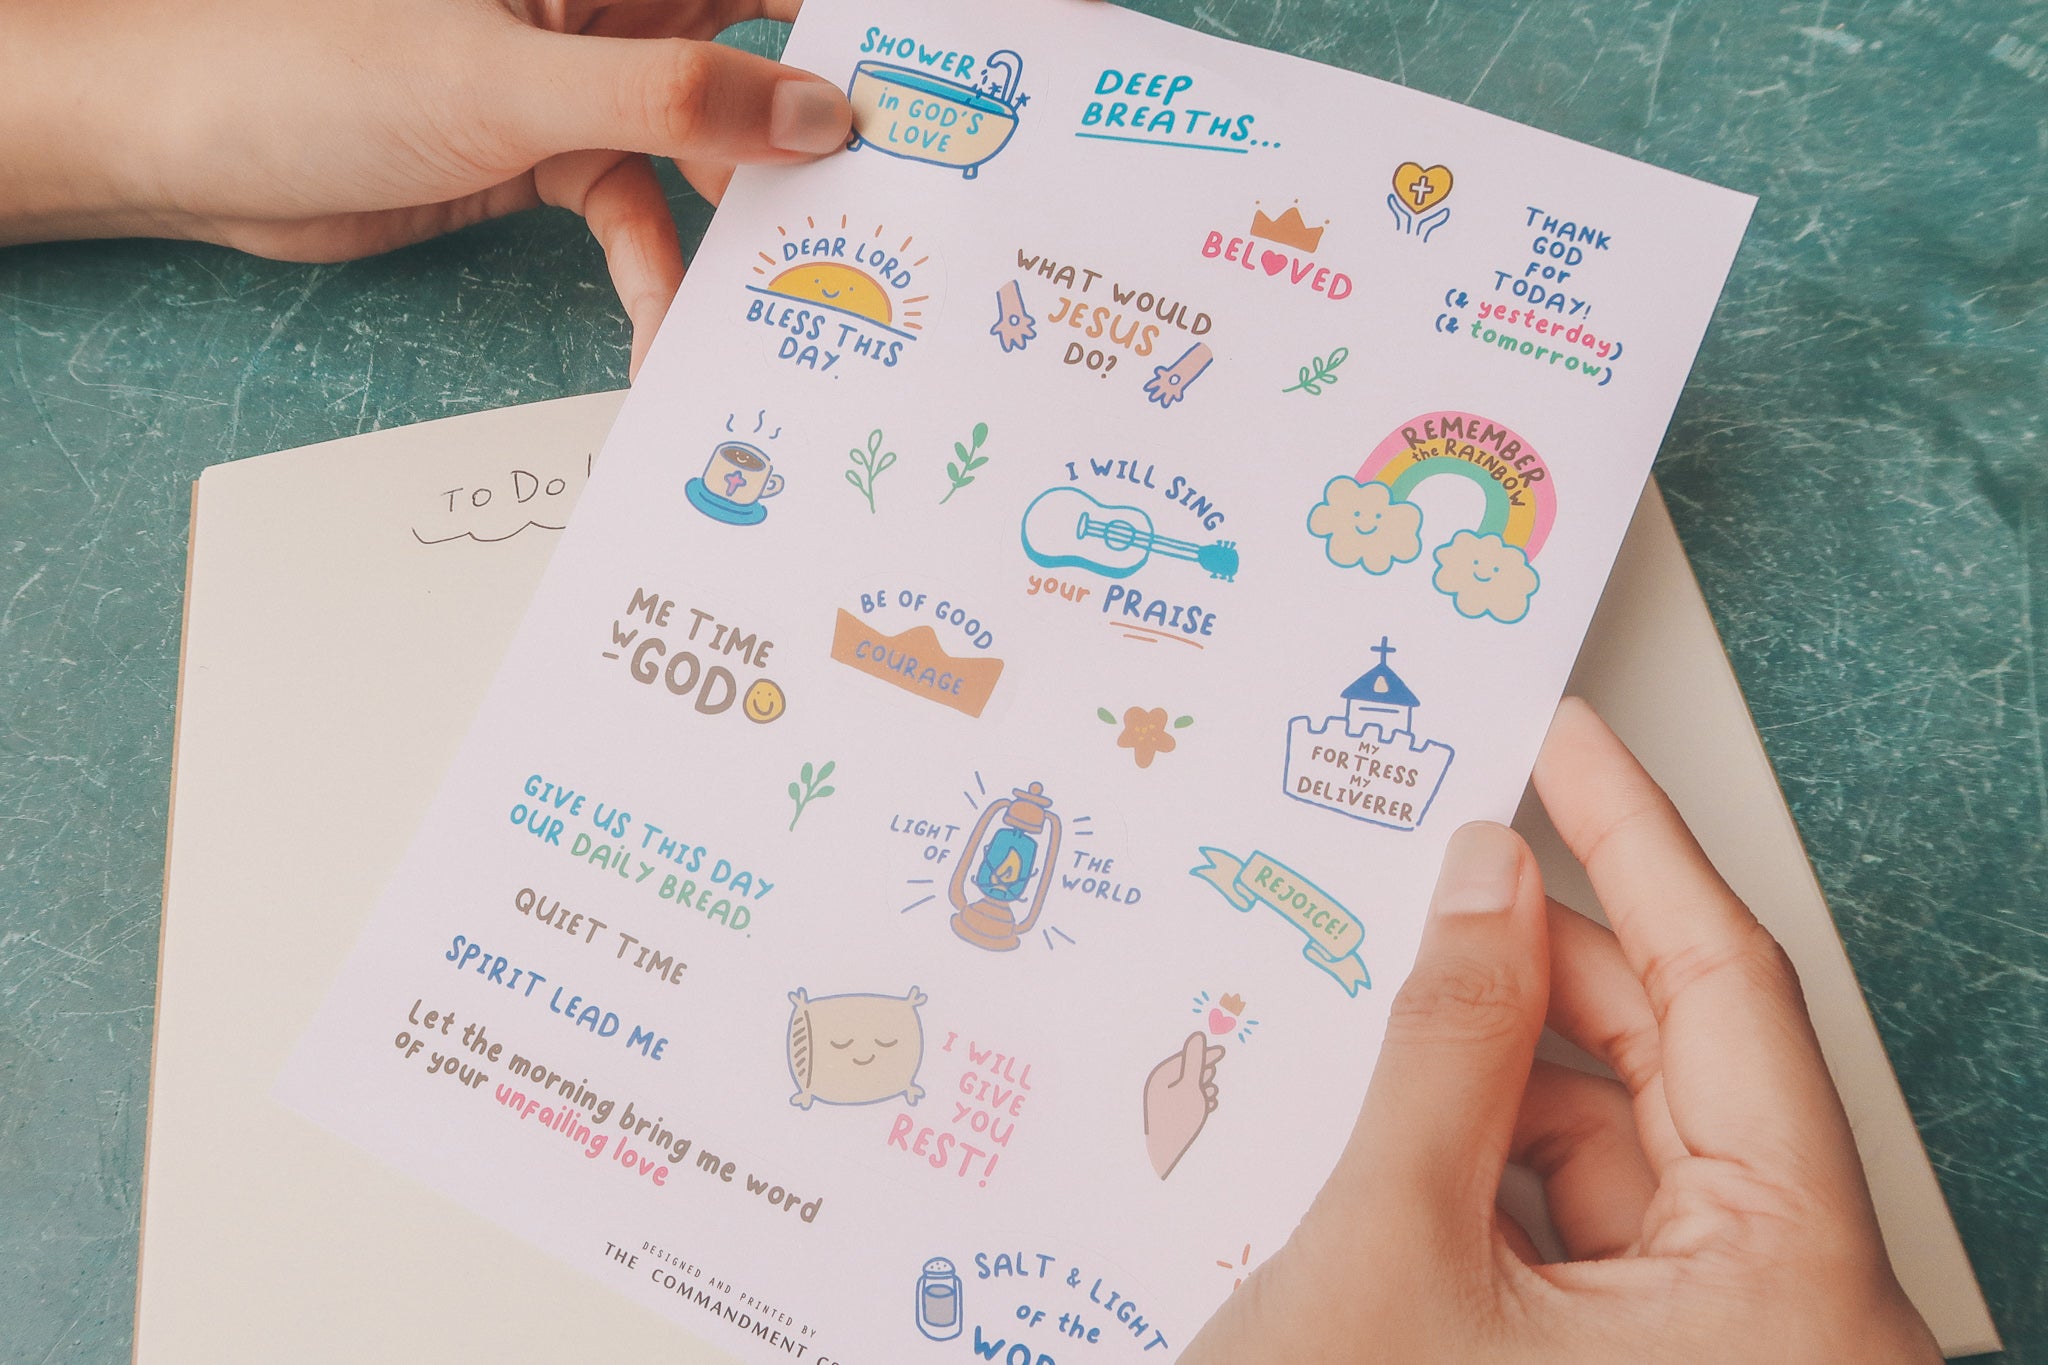 SHOWER
in GOD'S
LOVE
DEEP
BREATHS...
BELOVED
THANK
GOD
for
TODAY!
(& yesterday)
(& tomorrow)
DEAR LORD
BLESS THIS
DAY.
WHAT WOULD
JESUS
DO?
REMEMBER
the RAINBOW
I WILL SING
your PRAISE
TO DO
ME TIME
W GOD
BE OF GOOD
COURAGE
MY
FORTRESS
MY
DELIVERER
GIVE US THIS DAY
OUR DAILY BREAD.
LIGHT
OF
THE
WORLD
REJOICE!
QUIET TIME
SPIRIT LEAD ME
Let the morning bring me word
of your unfailing love
I WILL
GIVE
YOU
REST!
DESIGNED AND PRINTED BY
THE COMMANDMENT
SALT & LIGHT
of the